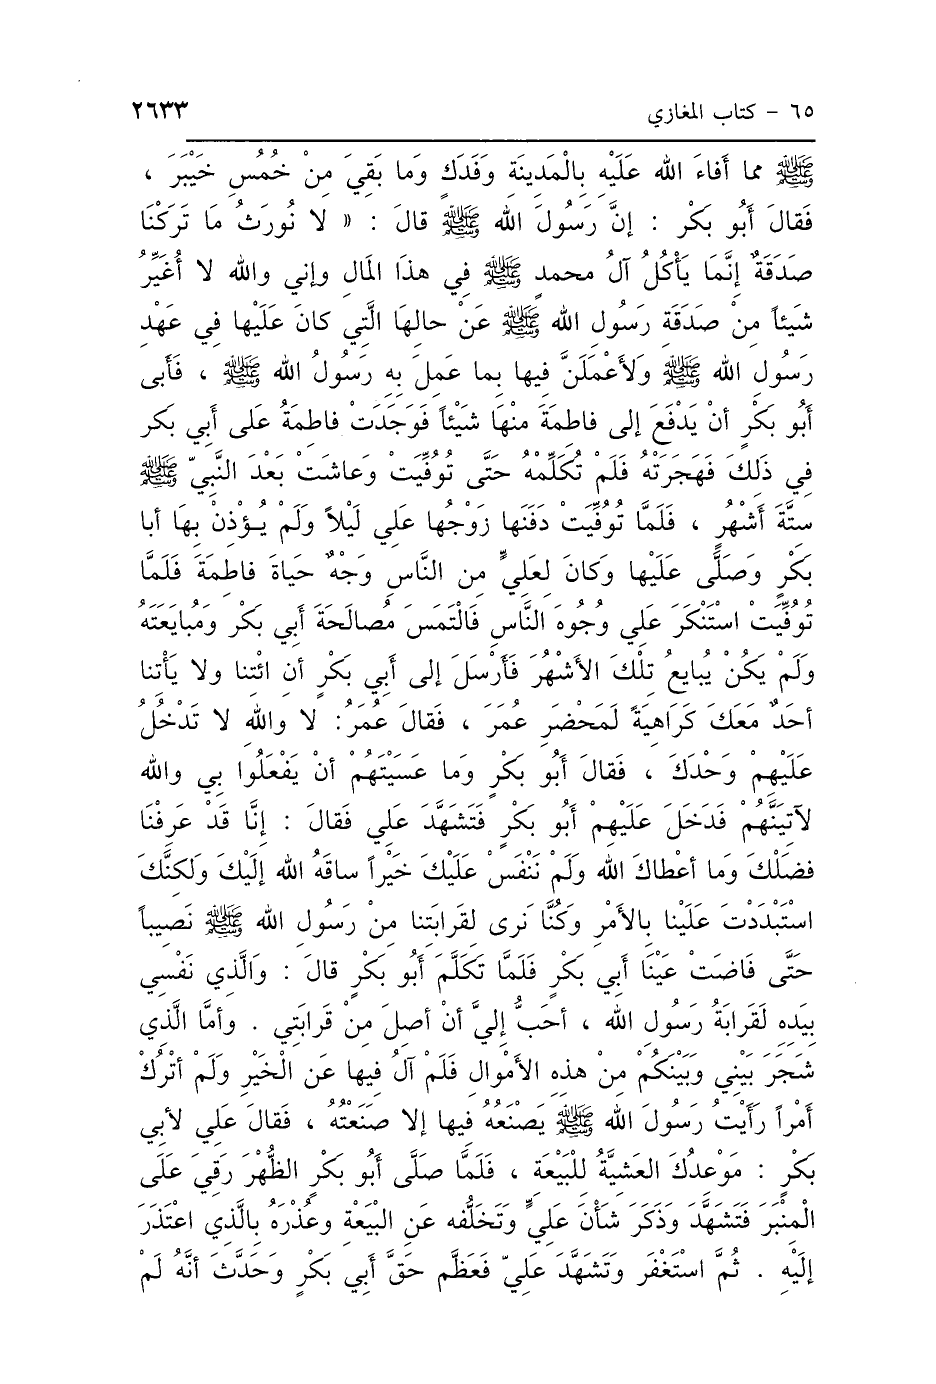 ٦٥ - كتاب المغازي ٢٦٣٣
ﷺ مما أَفاءَ الله عَلَيْهِ بِالْمَدِينَةِ وَفَدَكٍ وَمَا بَقِيَ مِنْ خُمُسِ خَيْبَرَ ،
فَقالَ أَبُو بَكْر : إِنَّ رَسُولَ الله ﷺ قالَ : « لا نُورَثُ مَا تَرَكْنَا
صَدَقَةٌ إِنَّمَا يَأْكُلُ آلُ محمدٍ ﷺ في هذَا المَال وإني والله لا أُغَيِّرُ
شَيْئاً مِنْ صَدَقَةِ رَسُولِ الله ﷺ عَنْ حالِهَا الَّتِي كانَ عَلَيْها فِي عَهْدِ
رَسُولِ الله ﷺ وَلأَعْمَلَنَّ فِيها بِما عَمِلَ بِهِ رَسُولُ الله ﷺ ، فَأَبى
أَبُو بَكْرٍ أَنْ يَدْفَعَ إلى فاطِمَةَ مِنْهَا شَيْئاً فَوَجَدَتْ فاطِمَةُ عَلى أَبي بَكر
فِي ذَلِكَ فَهَجَرَتْهُ فَلَمْ تُكَلِّمْهُ حَتَّى تُوُفِّيَتْ وَعاشَتْ بَعْدَ النَّبِيّ ﷺ
سِتَّةَ أَشْهُرٍ ، فَلَمَّا تُوُفِّيَتْ دَفَنَها زَوْجُها عَلِي لَيْلاً وَلَمْ يُؤْذِنْ بِهَا أَبا
بَكْرٍ وَصَلَّى عَلَيْها وَكانَ لِعَلِيٍّ مِن النَّاسِ وَجْهٌ حَياةَ فاطِمَةَ فَلَمَّا
تُوُفِّيَتْ اسْتَنْكَرَ عَلِي وُجُوهَ النَّاسِ فَالْتَمَسَ مُصالَحَةَ أَبِي بَكْر وَمُبايَعَتَهُ
وَلَمْ يَكُنْ يُبايِعُ تِلْكَ الأَشْهُرَ فَأَرْسَلَ إلى أَبِي بَكْرٍ أن ائْتِنا ولا يَأْتِنا
أَحَدٌ مَعَكَ كَرَاهِيَةً لِمَحْضَرِ عُمَرَ ، فَقالَ عُمَرُ: لا والله لا تَدْخُلُ
عَلَيْهِمْ وَحْدَكَ ، فَقالَ أَبُو بَكْرٍ وَما عَسَيْتَهُمْ أنْ يَفْعَلُوا بِي والله
لآتِيَنَّهُمْ فَدَخَلَ عَلَيْهِمْ أَبُو بَكْرٍ فَتَشَهَّدَ عَلِي فَقالَ : إِنَّا قَدْ عَرِفْنَا
فضْلَكَ وَما أَعْطاكَ الله وَلَمْ نَنْفَسْ عَلَيْكَ خَيْراً ساقَهُ الله إِلَيْكَ وَلكِنَّكَ
اسْتَبْدَدْتَ عَلَيْنا بِالأَمْرِ وَكُنَّا نَرى لِقَرابَتِنا مِنْ رَسُولِ الله ﷺ نَصِيباً
حَتَّى فَاضَتْ عَيْنَا أَبِي بَكْرٍ فَلَمَّا تَكَلَّمَ أَبُو بَكْرٍ قالَ : وَالَّذِي نَفْسِي
بِيَدِهِ لَقَرابَةُ رَسُولِ الله ، أَحَبُّ إِليَّ أنْ أصِلَ مِنْ قَرابَتِي . وأمَّا الَّذِي
شَجَرَ بَيْنِي وَبَيْنَكُمْ مِنْ هذِهِ الأَمْوال فَلَمْ آلُ فِيها عَنِ الْخَيْرِ وَلَمْ أتْرُكْ
أَمْراً رَأَيْتُ رَسُولَ الله ﷺ يَصْنَعُهُ فِيها إلا صَنَعْتُهُ ، فَقالَ عَلِي لأبي
بَكْرٍ : مَوْعِدُكَ العَشِيَّةُ لِلْبَيْعَةِ ، فَلَمَّا صَلَّى أَبُو بَكْرٍ الظُّهْرَ رَقِيَ عَلَى
الْمِنْبَرِ فَتَشَهَّدَ وَذَكَرَ شَأْنَ عَلِيٍّ وَتَخَلُّفه عَنِ البَيْعَةِ وعُذْرَهُ بِالَّذِي اعتَذَرَ
إلَيْهِ . ثُمَّ اسْتَغْفَر وَتَشَهَّدَ عَلِيّ فَعَظَّم حَقَّ أَبِي بَكْرٍ وَحَدَّثَ أَنَّهُ لَمْ